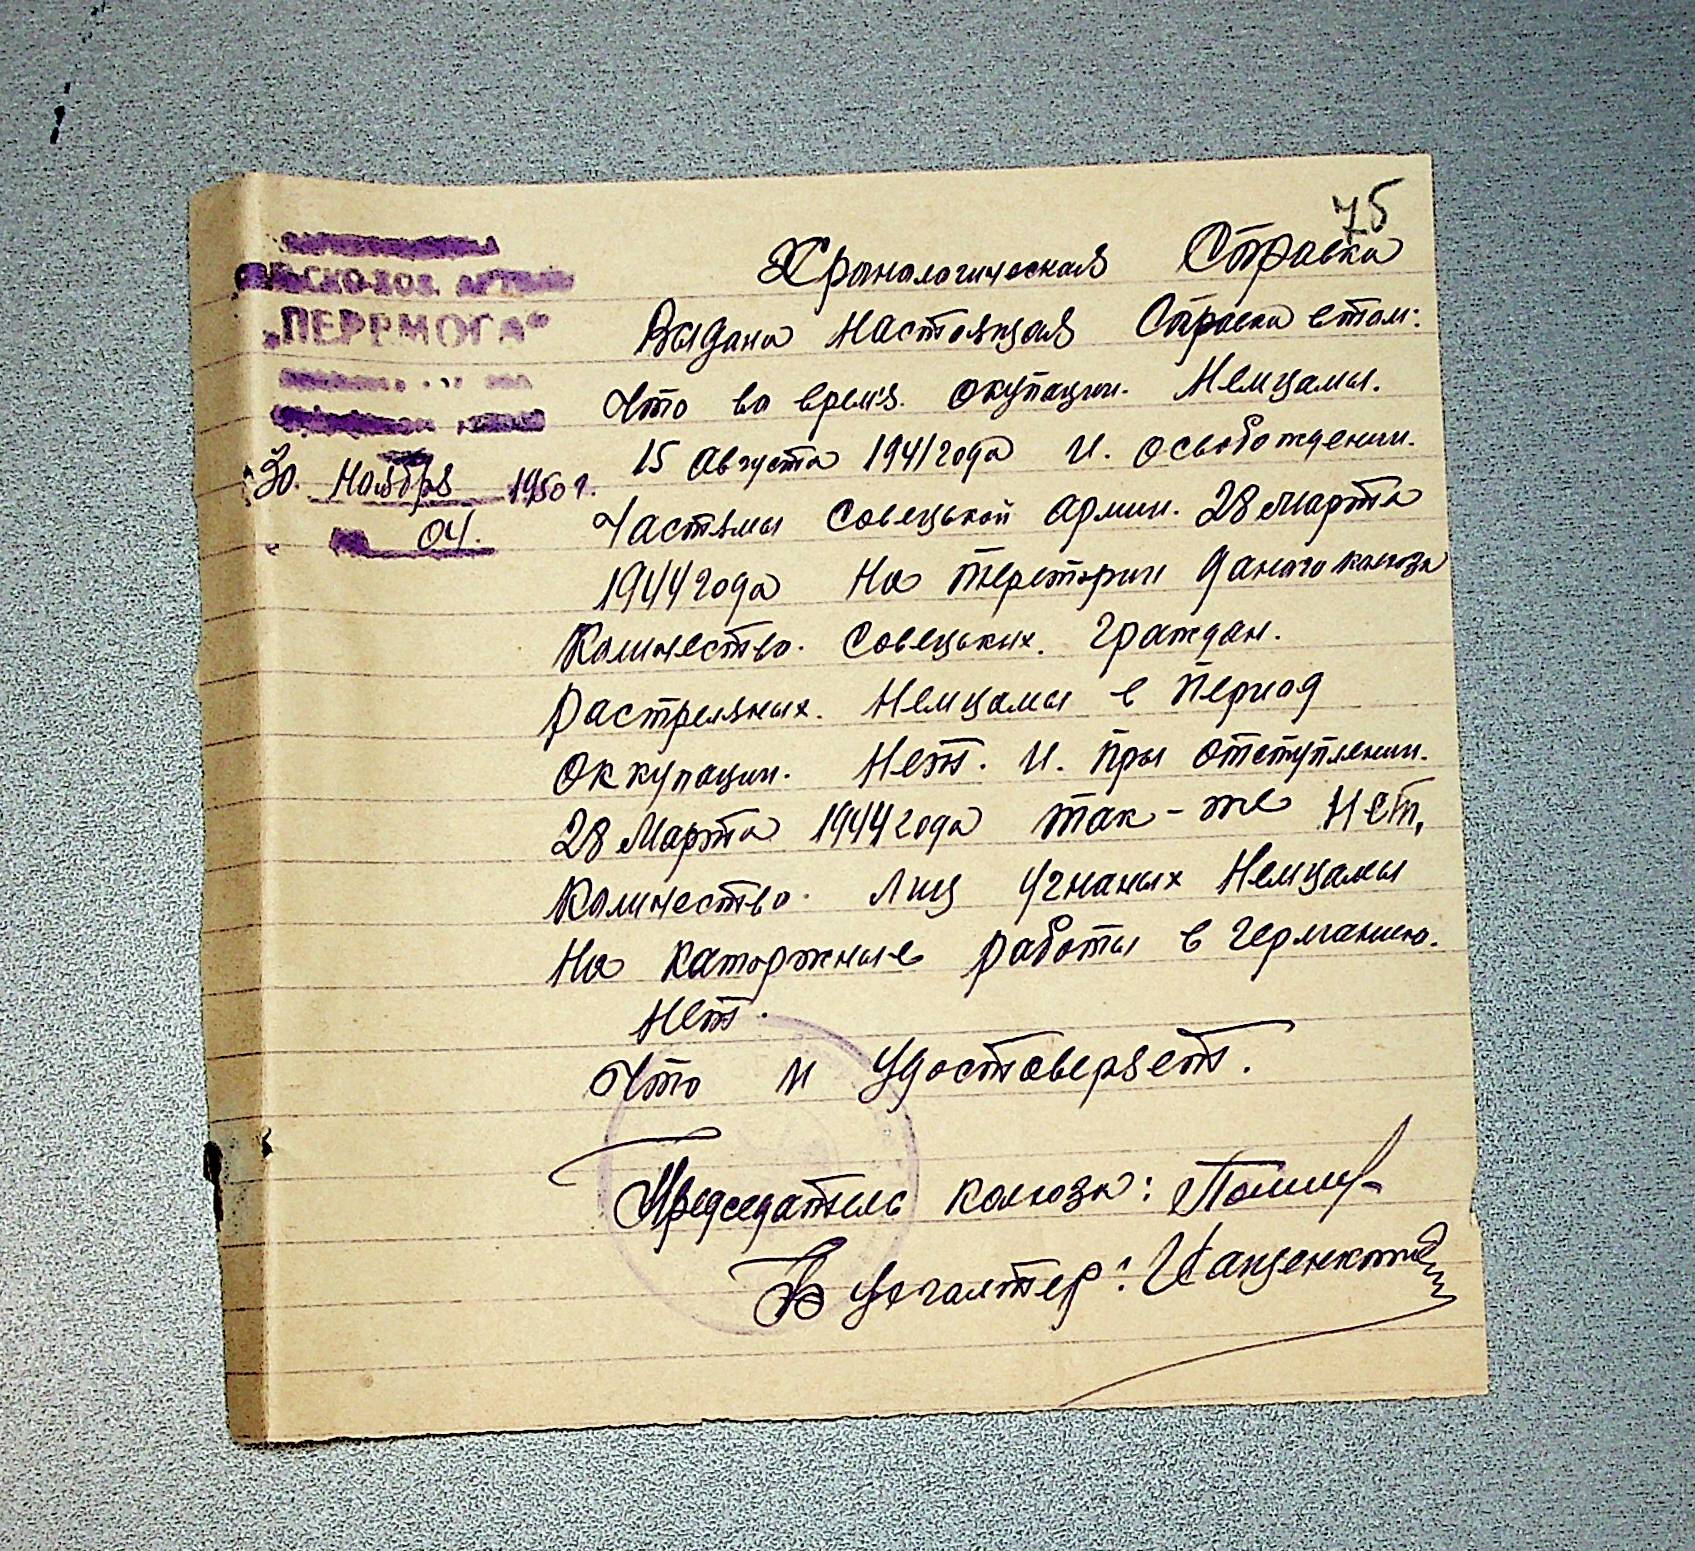 75
СЕЛЬСКО-ХОЗ. АРТЕЛЬ
„ПЕРЕМОГА"
30. Ноября 1950 г.
04.
Хрынологическая Справка
Выдана Настоящая Справка втом:
Что во время. окупации. Немцамы.
15 Августа 1941 года И. освобождении.
Частямы Совецькой Армии. 28 Марта
1944 года На Теретории даного колхоза
Количество. Совецьких. Граждан.
Растреляных. Немцамы в Период
Оккупации. Нет. И. Пры отступлении.
28 Марта 1944 года так-же Нет.
Количество. Лиц Угнаных Немцамы
На каторжные работы в Германию.
Нет.
Что и Удостоверяет.
Председатель колхоза:
Бухгалтер: